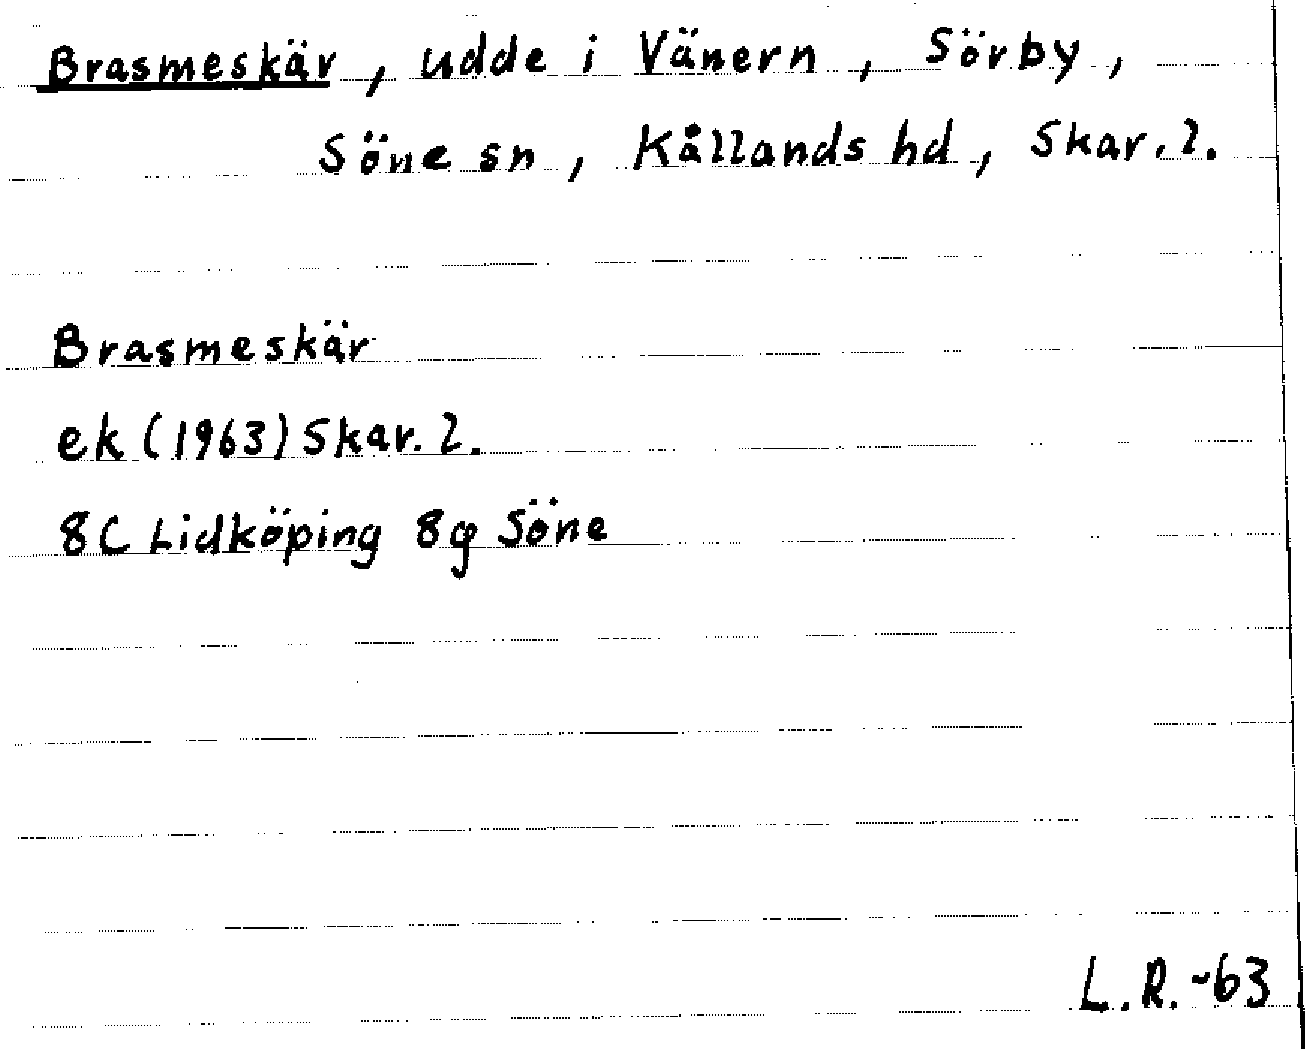 Brasmeskär, udde i Vänern, Sörby,
Söne sn, Kållands hd, Skar. l.
Brasmeskär
ek (1963) Skar. l.
8C Lidköping 8g Söne
L.R.-63